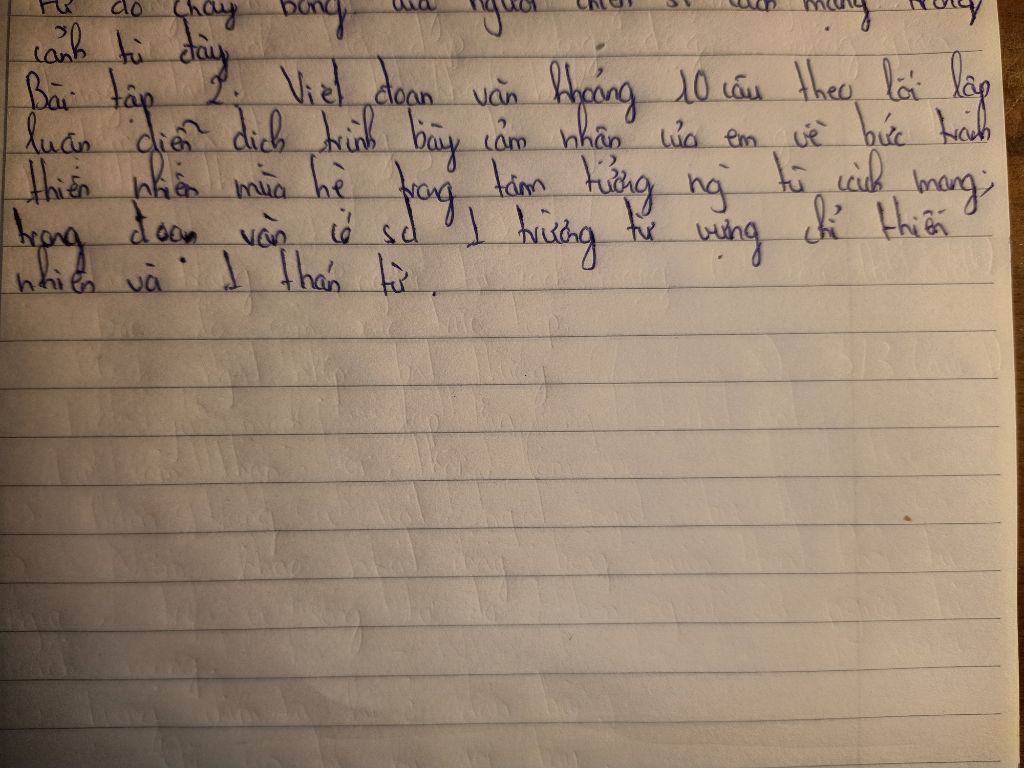 tự do cháy bỏng của người chiến sĩ cách mạng trong
cảnh tù đày
Bài tập 2: Viết đoạn văn khoảng 10 câu theo lối lập
luận diễn dịch trình bày cảm nhận của em về bức tranh
thiên nhiên mùa hè trong tâm tưởng ng tù cách mạng;
trong đoạn văn có sd 1 trường từ vựng chỉ thiên
nhiên và 1 thán từ.